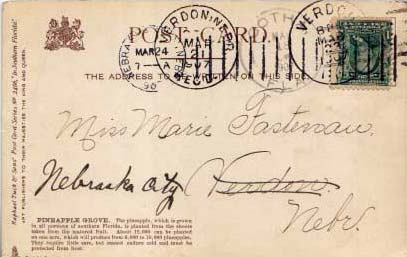 POST CARD.
THE ADDRESS TO BE WRITTEN ON THIS SIDE
VERDON, NEBR.
MAR
VERDON
MAR 24
7- A
NEBRASKA
REC'D
FLA
Raphael Tuck & Sons' Post Card Series No. 2486, "In Southern Florida."
ART PUBLISHERS TO THEIR MAJESTIES THE KING AND QUEEN
Miss Marie Fastenau.
Nebraska City Verdon
Nebr.
PINEAPPLE GROVE. The pineapple, which is grown
in all portions of southern Florida, is planted from the shoots
taken from the matured fruit. About 12,000 can be planted
on one acre, which will produce from 6,000 to 10,000 pineapples.
They require little care, but cannot endure cold and must be
protected from frost.